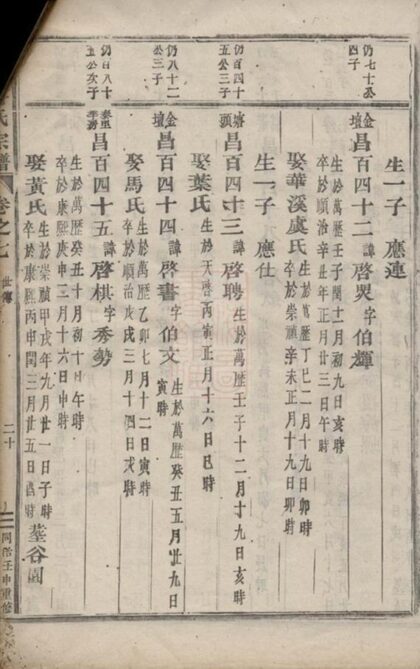 生一子 應蓮
仍七十公
四子
金
壇
昌百四十二諱啓煚字伯輝
生於萬歷壬子閏十一月初九日亥時
卒於順治辛丑年正月廿三日午時
娶華溪虞氏
生於萬歷丁巳二月十九日卯時
卒於崇禎辛未正月十九日卯時
生一子 應仕
仍百四十
五公三子
塘
頭
昌百四十三諱啓聘
生於萬歷壬子十二月十九日亥時
娶葉氏
生於天啓丙寅正月十六日巳時
仍八十二
公三子
金
壇
昌百四十四諱啓書字伯文
生於萬歷癸丑五月廿九日
寅時
娶馬氏
生於萬歷乙卯七月十二日寅時
卒於順治戊戌三月十四日戌時
仍百八十
五公次子
昌百四十五諱啓棋字秀勢
生於萬歷癸丑十月初十日午時
卒於康熙庚申三月十六日申時
娶黃氏
生於崇禎甲戌年九月廿一日子時
卒於康熙丙申閏三月廿五日酉時
墓谷園
氏宗譜
卷之七
世傳
二十
同治壬申重修